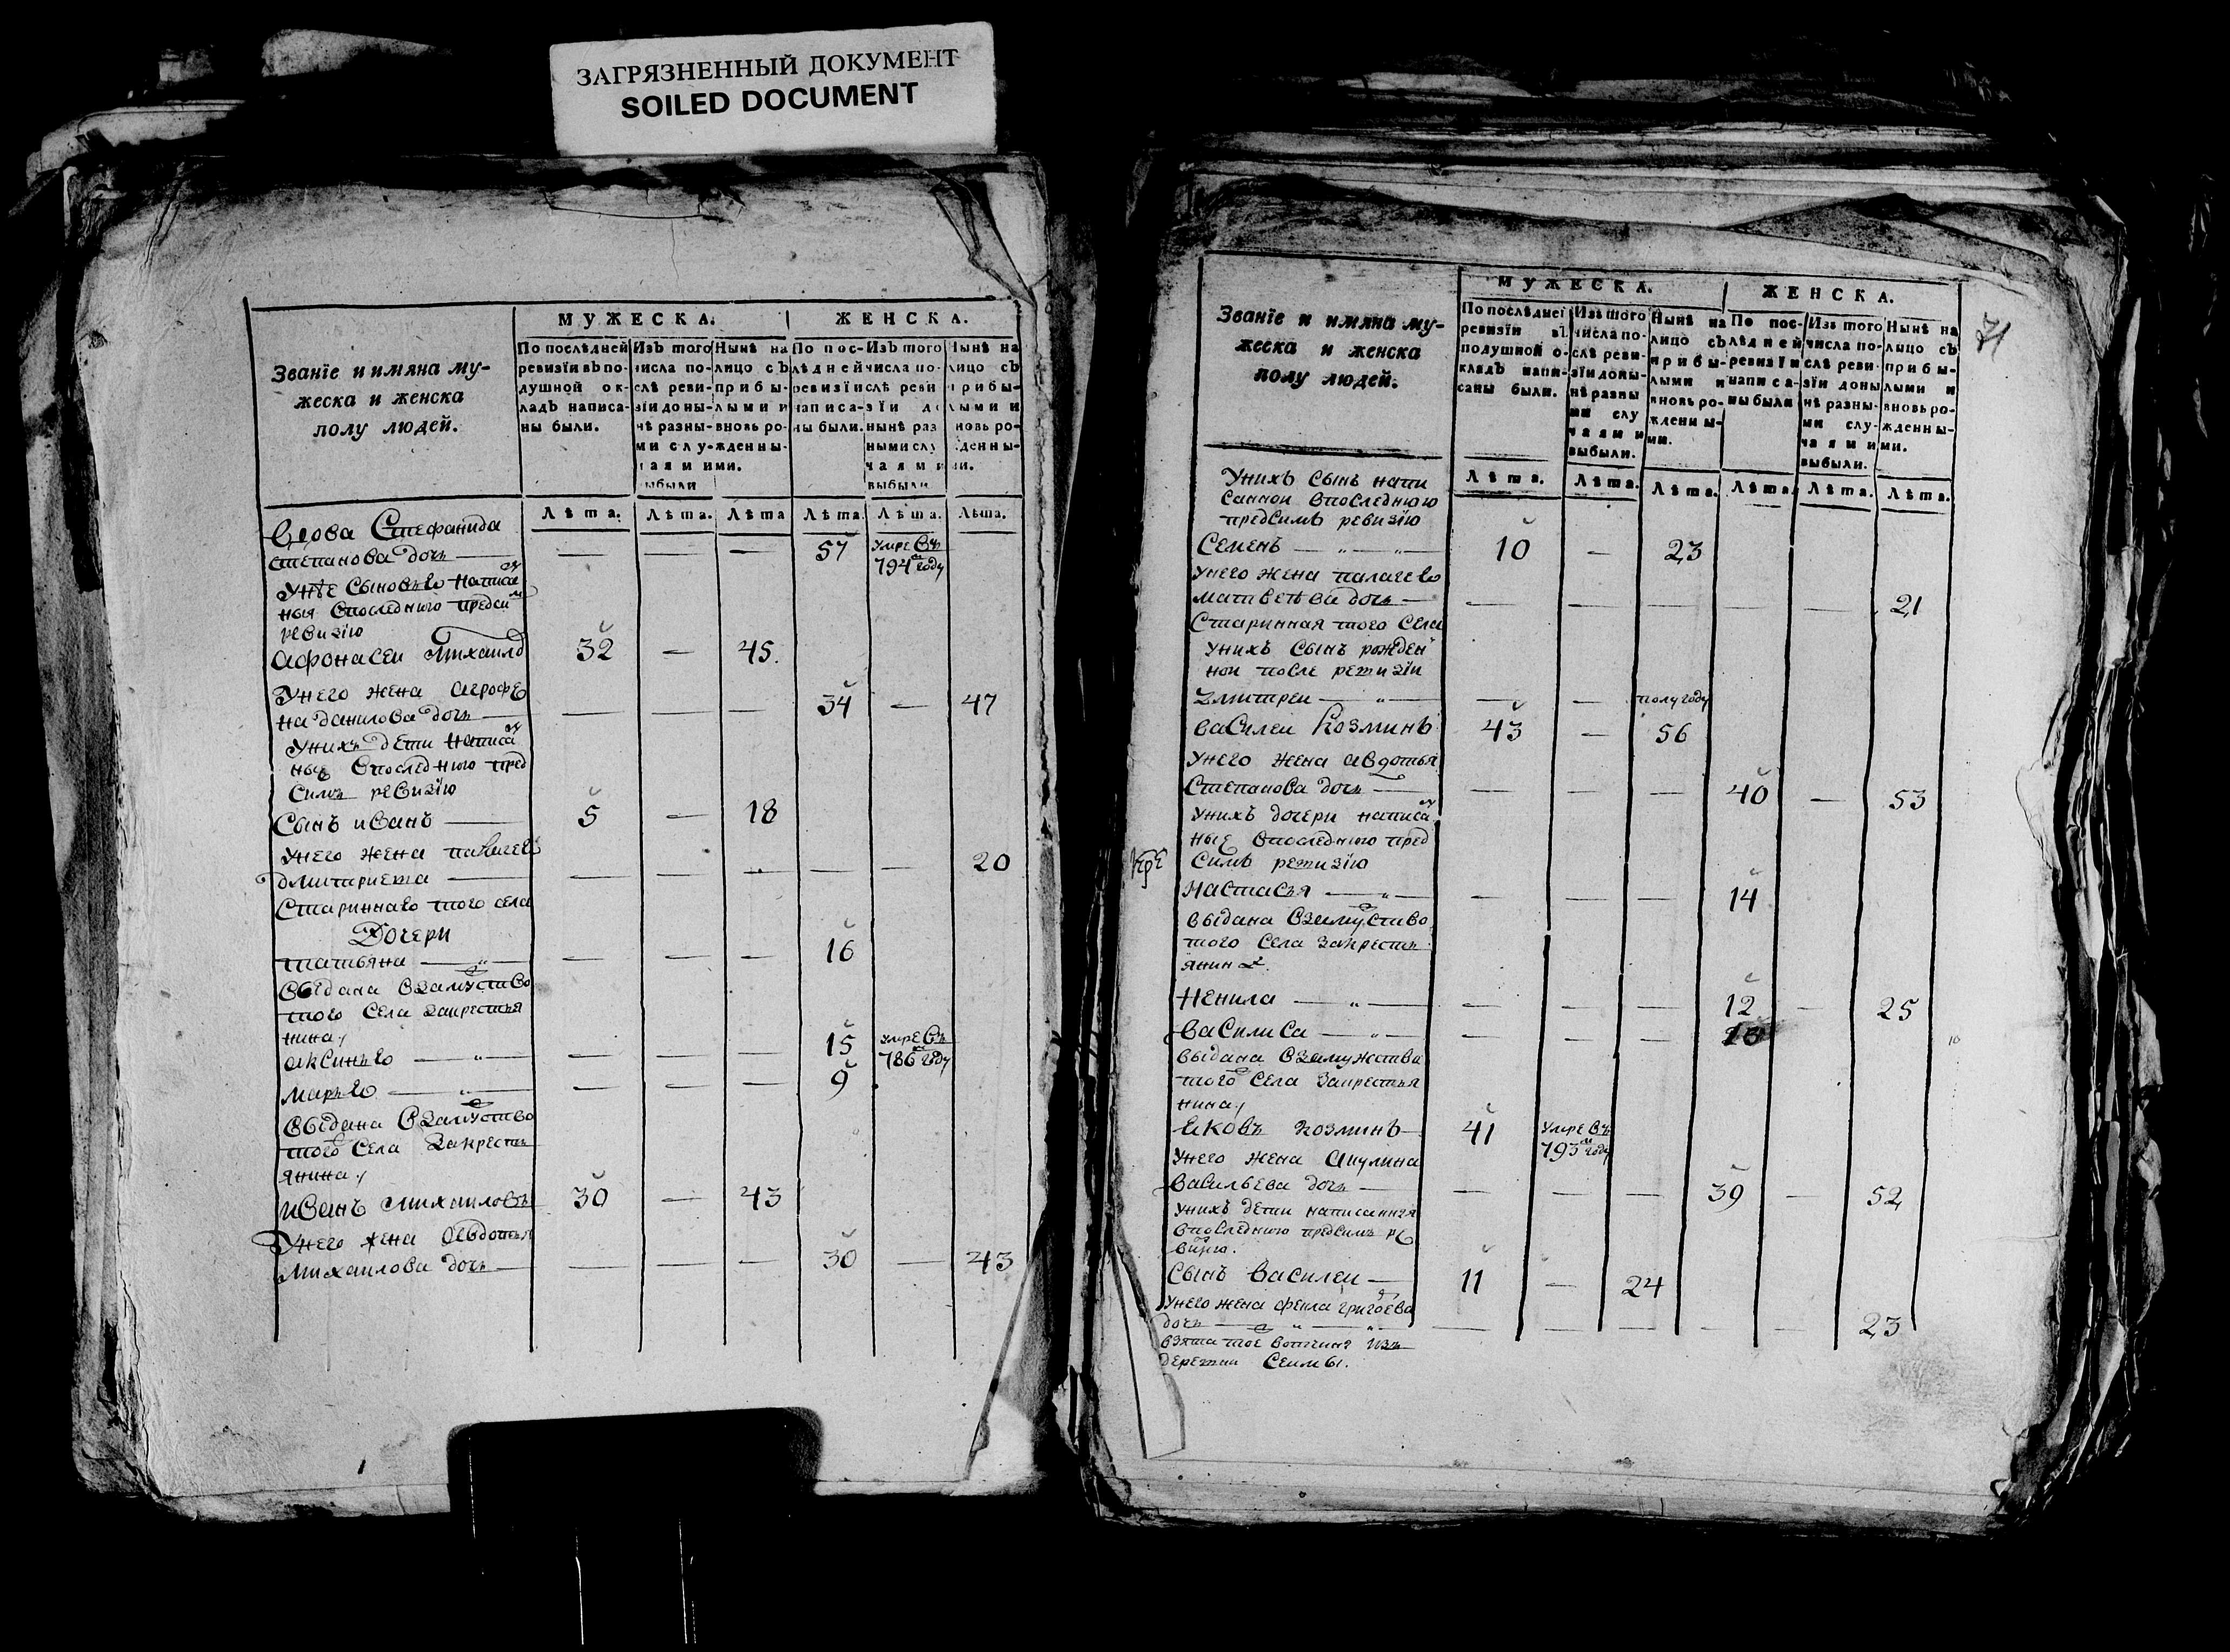 ЗАГРЯЗНЕННЫЙ ДОКУМЕНТ
SOILED DOCUMENT
Званїе и имяна му-
жеска и женска
полу людей.
МУЖЕСКА.
ЖЕНСКА.
По послѣдней ревизїи въ по-душной ок-ладъ написа-ны были.
Изъ того числа по-слѣ реви-зїи до ны-нѣ разны-ми слу-чаями выбыли
Нынѣ на лицо съ прибы-лыми и вновь ро-жденны-ми.
По пос-лѣдней ревизїи написа-ны были.
Изъ того числа по-слѣ реви зїи до нынѣ раз ными слу чаями выбыли
Нынѣ на лицо съ прибы-лыми и вновь ро-жденны-ми.
Лѣта. Лѣта. Лѣта Лѣта. Лѣта. Лѣта.
вдова Стефанида
степанова дочь — — — — 57 умре въ 794м году
унѣе сыновью написа
ныя впоследнюю предсим
ревизїю
Афонасеи Михаило 32 — 45.
Унего жена агрофе
на данилова дочь — — — — 34 — 47
Унихъ дети написа
ные впоследнюю пред
симъ ревизїю
Сынъ иванъ — 5 — 18
Унего жена палагею
дмитриева — — — — — — 20
Стариннаго того села
Дочери
татьяна — „ — — — — 16
выдана взамуство
того Села закрестья
нина
аксинью — „ — — — — 15 умре въ 786м году
марью — „ — — — — 9
выдана взамуство
того Села Закресть
янина
иванъ михаиловъ 30 — 43
Унего жена авдотья
михаилова дочь — — — — 30 — 43
71
Званїе и имяна му-
жеска и женска
полу людей.
МУЖЕСКА.
ЖЕНСКА.
По послѣдней ревизїи въ подушной о-кладъ напи-саны были.
Изъ того числа по-слѣ реви-зїи до ны-нѣ разны ми слу чаями выбыли.
Нынѣ на лицо съ прибы-лыми и вновь ро-жденны-ми.
По пос-лѣдней ревизїи написа-ны были
Изъ того числа по-слѣ реви-зїи до ны нѣ разны-ми слу-чаями выбыли.
Нынѣ на лицо съ прибы-лыми и вновь ро-жденны-ми.
Лѣта. Лѣта. Лѣта. Лѣта. Лѣта. Лѣта.
Унихъ сынъ напи
санной впоследнюю
предсимъ ревизїю
Семенъ — „ — „ — 10 — 23
унего жена палагею
матвеева дочь — — — — — — 21
Старинная того Села
унихъ Сынъ рожден
нои после ревизїи
Дмитреи — „ — — — полугоду
василеи козминъ 43 — 56
унего жена авдотья
Степанова дочь — — — — 40 — 53
унихъ дочери написа
ные впоследнюю пред
симъ ревизїю
настасья — „ — — — — 14
выдана взамуство
того Села закресть
янина
Ненила — „ — — — — 12 — 25
василиса — „ — — — — 10
выдана взамужства
того Села закрестья
нина
яковъ козминъ — 41 умре въ 793м году
унего жена акулина
васильева дочь — — — — 39 — 52
унихъ дети написанныя
впоследнюю предсимъ ре
визїю.
Сынъ василеи — 11 — 24
унего жена фекла григоева
дочь — „ — „ — — — — — — 23
взята тое вотчины изъ
деревни Сеимы.